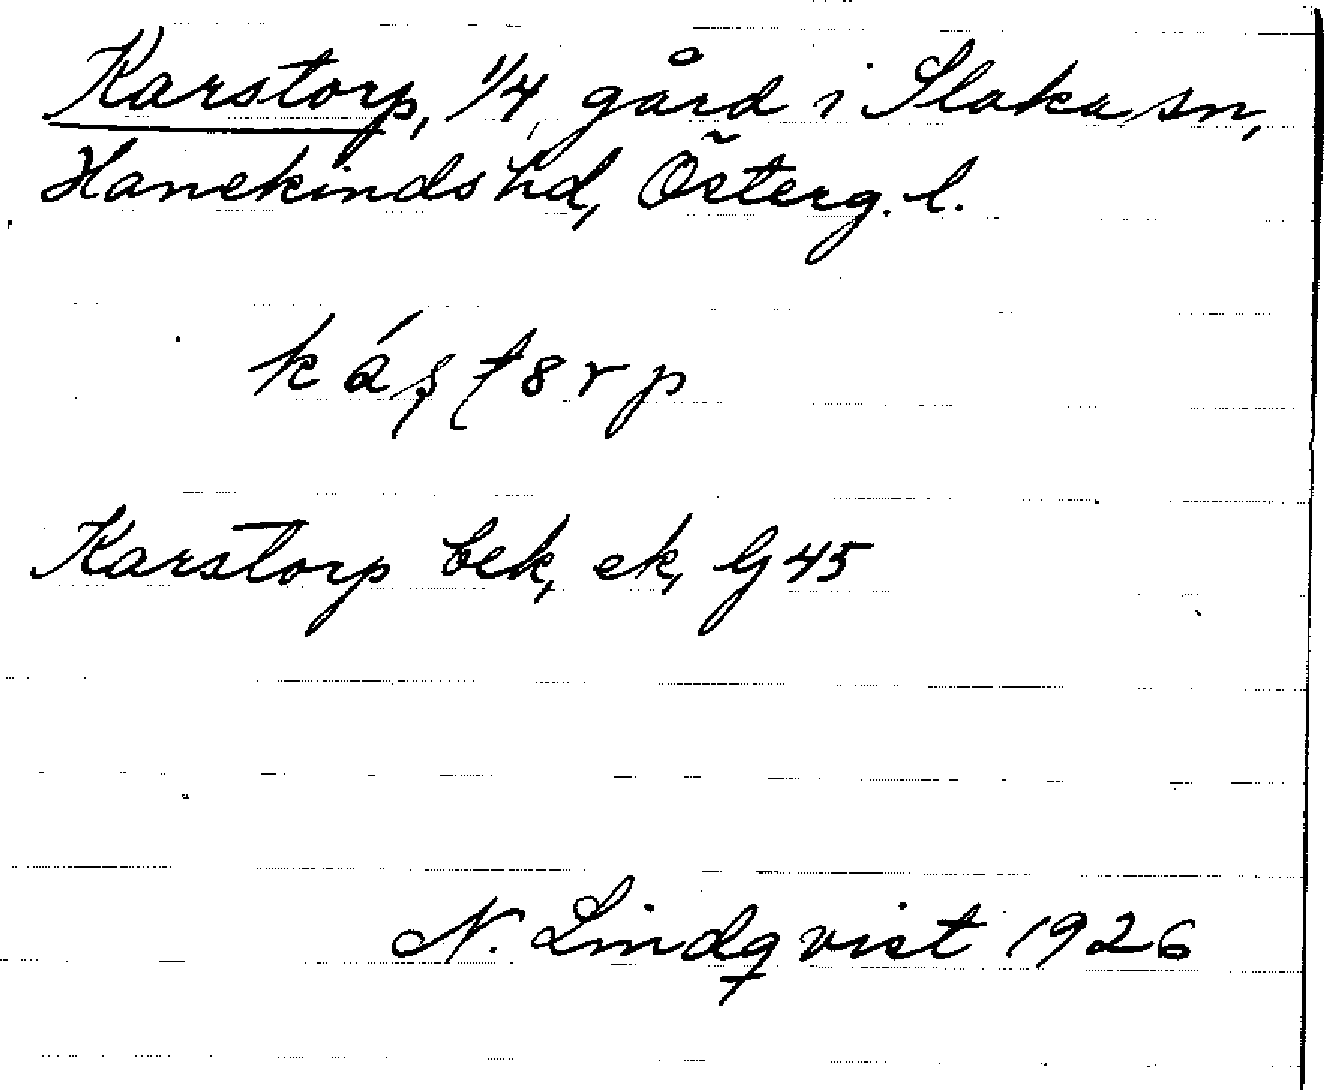 Karstorp, 1/4 gård i Slaka sn,
Hanekinds hd, Österg. l.
káʂʈ8rp
Karstorp bek, ek, Gj 45
N. Lindqvist 1926